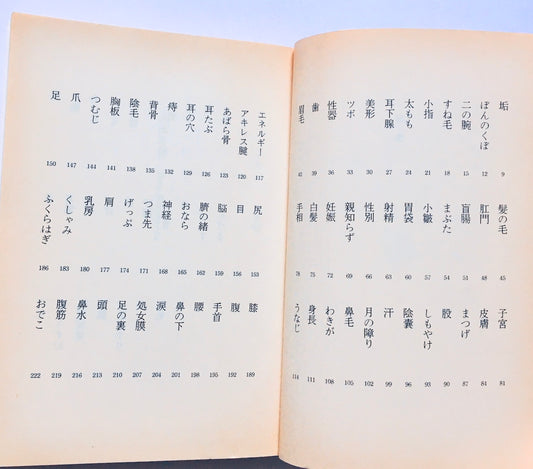 垢 9
ぼんのくぼ 12
二の腕 15
すね毛 18
小指 21
太もも 24
耳下腺 27
美形 30
ツボ 33
性器 36
歯 39
眉毛 42
髪の毛 45
肛門 48
盲腸 51
まぶた 54
小皺 57
胃袋 60
射精 63
性別 66
親知らず 69
妊娠 72
白髪 75
手相 78
子宮 81
皮膚 84
まつげ 87
股 90
しもやけ 93
陰嚢 96
汗 99
月の障り 102
鼻毛 105
わきが 108
身長 111
うなじ 114
エネルギー 117
アキレス腱 120
あばら骨 123
耳たぶ 126
耳の穴 129
痔 132
背骨 135
陰毛 138
胸板 141
つむじ 144
爪 147
足 150
尻 153
目 156
脳 159
臍の緒 162
おなら 165
神経 168
つま先 171
げっぷ 174
肩 177
乳房 180
くしゃみ 183
ふくらはぎ 186
膝 189
腹 192
手首 195
腰 198
鼻の下 201
涙 204
処女膜 207
足の裏 210
頭 213
鼻水 216
腹筋 219
おでこ 222